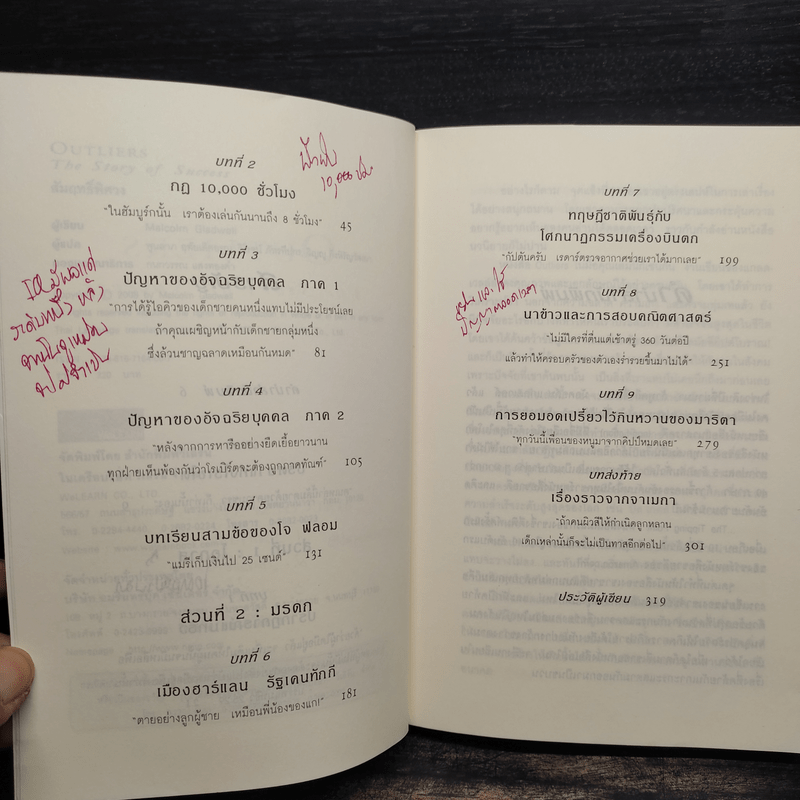 บทที่ 2
กฎ 10,000 ชั่วโมง
"ในฮัมบูร์กนั้น เราต้องเล่นกันนานถึง 8 ชั่วโมง" 45
10,000 ชม.
บทที่ 3
ปัญหาของอัจฉริยบุคคล ภาค 1
"การได้รู้ไอคิวของเด็กชายคนหนึ่งแทบไม่มีประโยชน์เลย
ถ้าคุณเผชิญหน้ากับเด็กชายกลุ่มหนึ่ง
ซึ่งล้วนชาญฉลาดเหมือนกันหมด" 81
IQ มีผลแค่
ระดับหนึ่ง หลัง
บทที่ 4
ปัญหาของอัจฉริยบุคคล ภาค 2
"หลังจากการหารืออย่างยืดเยื้อยาวนาน
ทุกฝ่ายเห็นพ้องกันว่าโรเบิร์ตจะต้องถูกภาคทัณฑ์" 105
บทที่ 5
บทเรียนสามข้อของโจ ฟลอม
"แมรีเก็บเงินไป 25 เซนต์" 131
ส่วนที่ 2 : มรดก
บทที่ 6
เมืองฮาร์แลน รัฐเคนทักกี
"ตายอย่างลูกผู้ชาย เหมือนพี่น้องของแก!" 181
บทที่ 7
ทฤษฎีชาติพันธุ์กับ
โศกนาฏกรรมเครื่องบินตก
"กัปตันครับ เรดาร์ตรวจอากาศช่วยเราได้มากเลย" 199
และใช้
ปัญญาตลอดเวลา
บทที่ 8
นาข้าวและการสอบคณิตศาสตร์
"ไม่มีใครที่ตื่นแต่เช้าตรู่ 360 วันต่อปี
แล้วทำให้ครอบครัวของตัวเองร่ำรวยขึ้นมาไม่ได้" 251
บทที่ 9
การยอมอดเปรี้ยวไว้กินหวานของมาริตา
"ทุกวันนี้เพื่อนของหนูมาจากคิปป์หมดเลย" 279
บทส่งท้าย
เรื่องราวจากจาเมกา
"ถ้าคนผิวสีให้กำเนิดลูกหลาน
เด็กเหล่านั้นก็จะไม่เป็นทาสอีกต่อไป" 301
ประวัติผู้เขียน 319